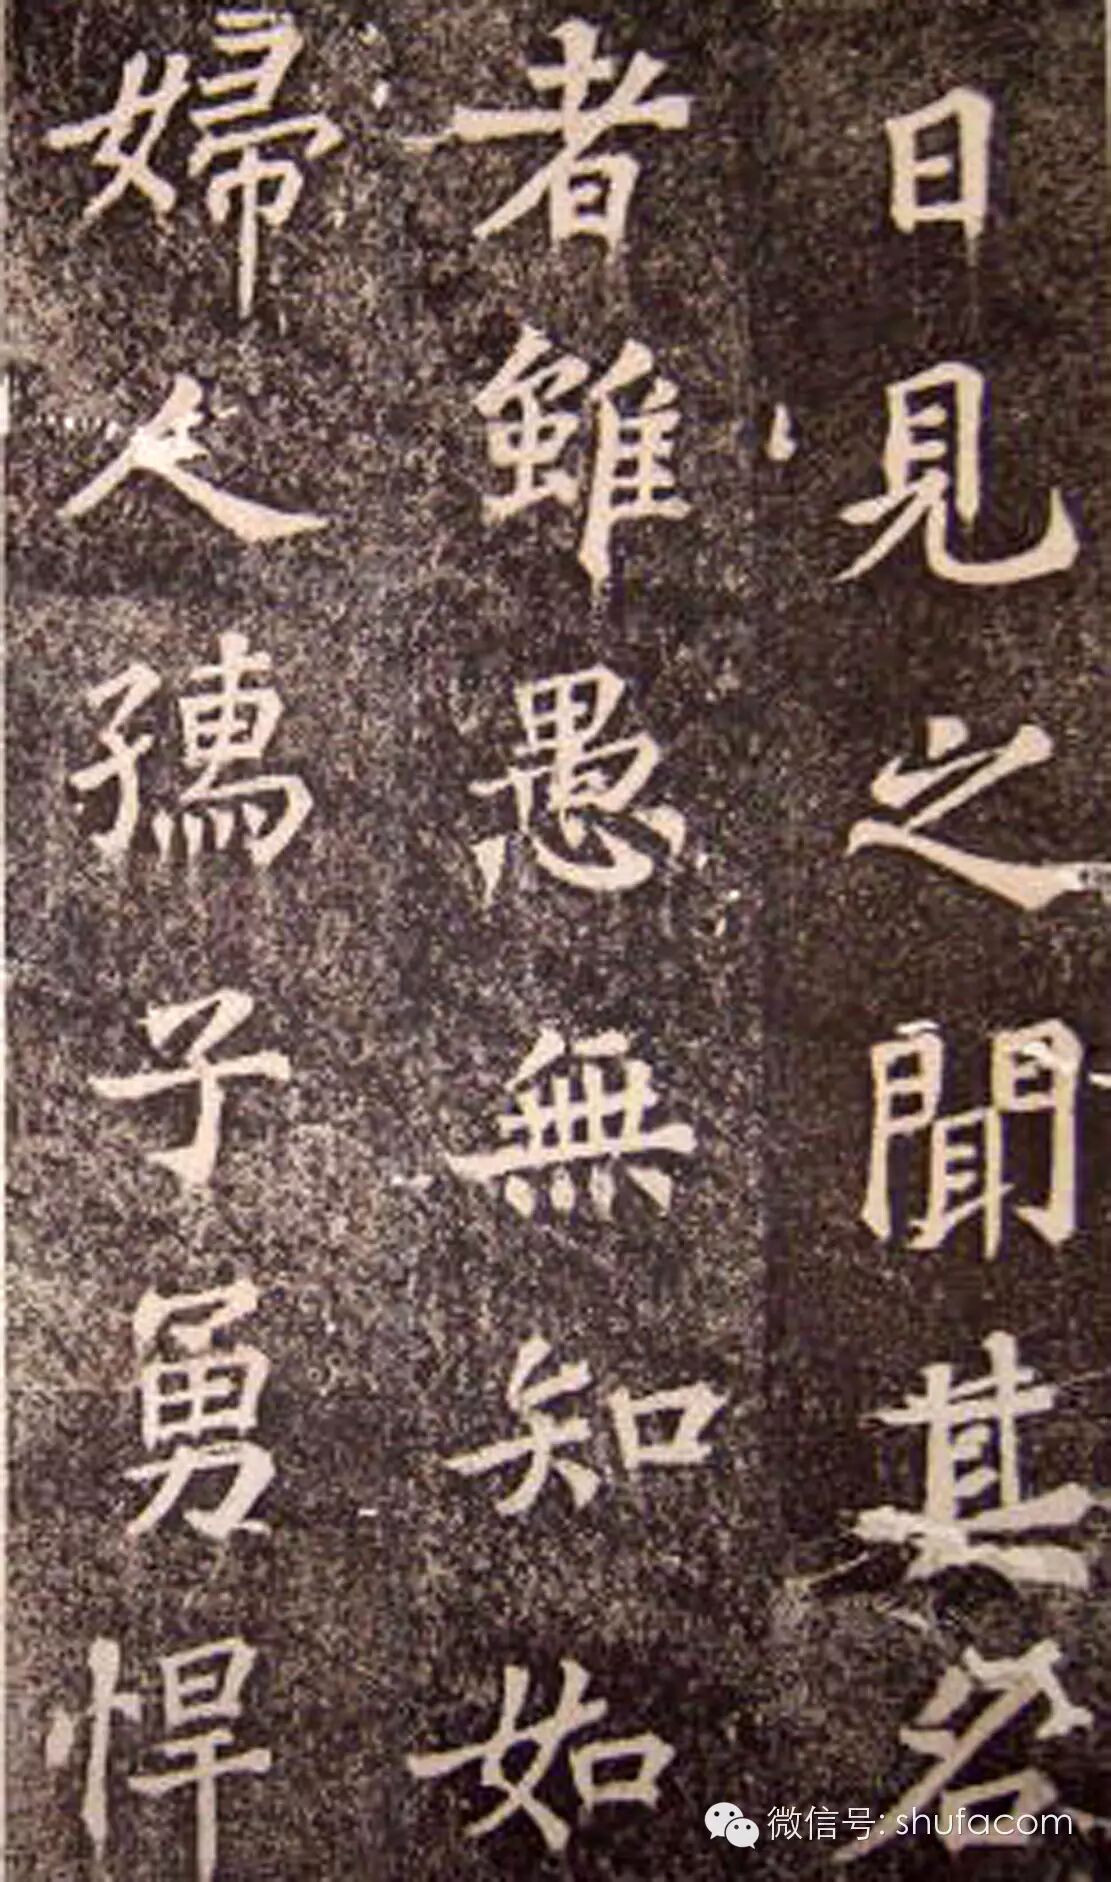 日見之聞其名
者雖愚無知如
婦人孺子勇悍
微信号: shufacom